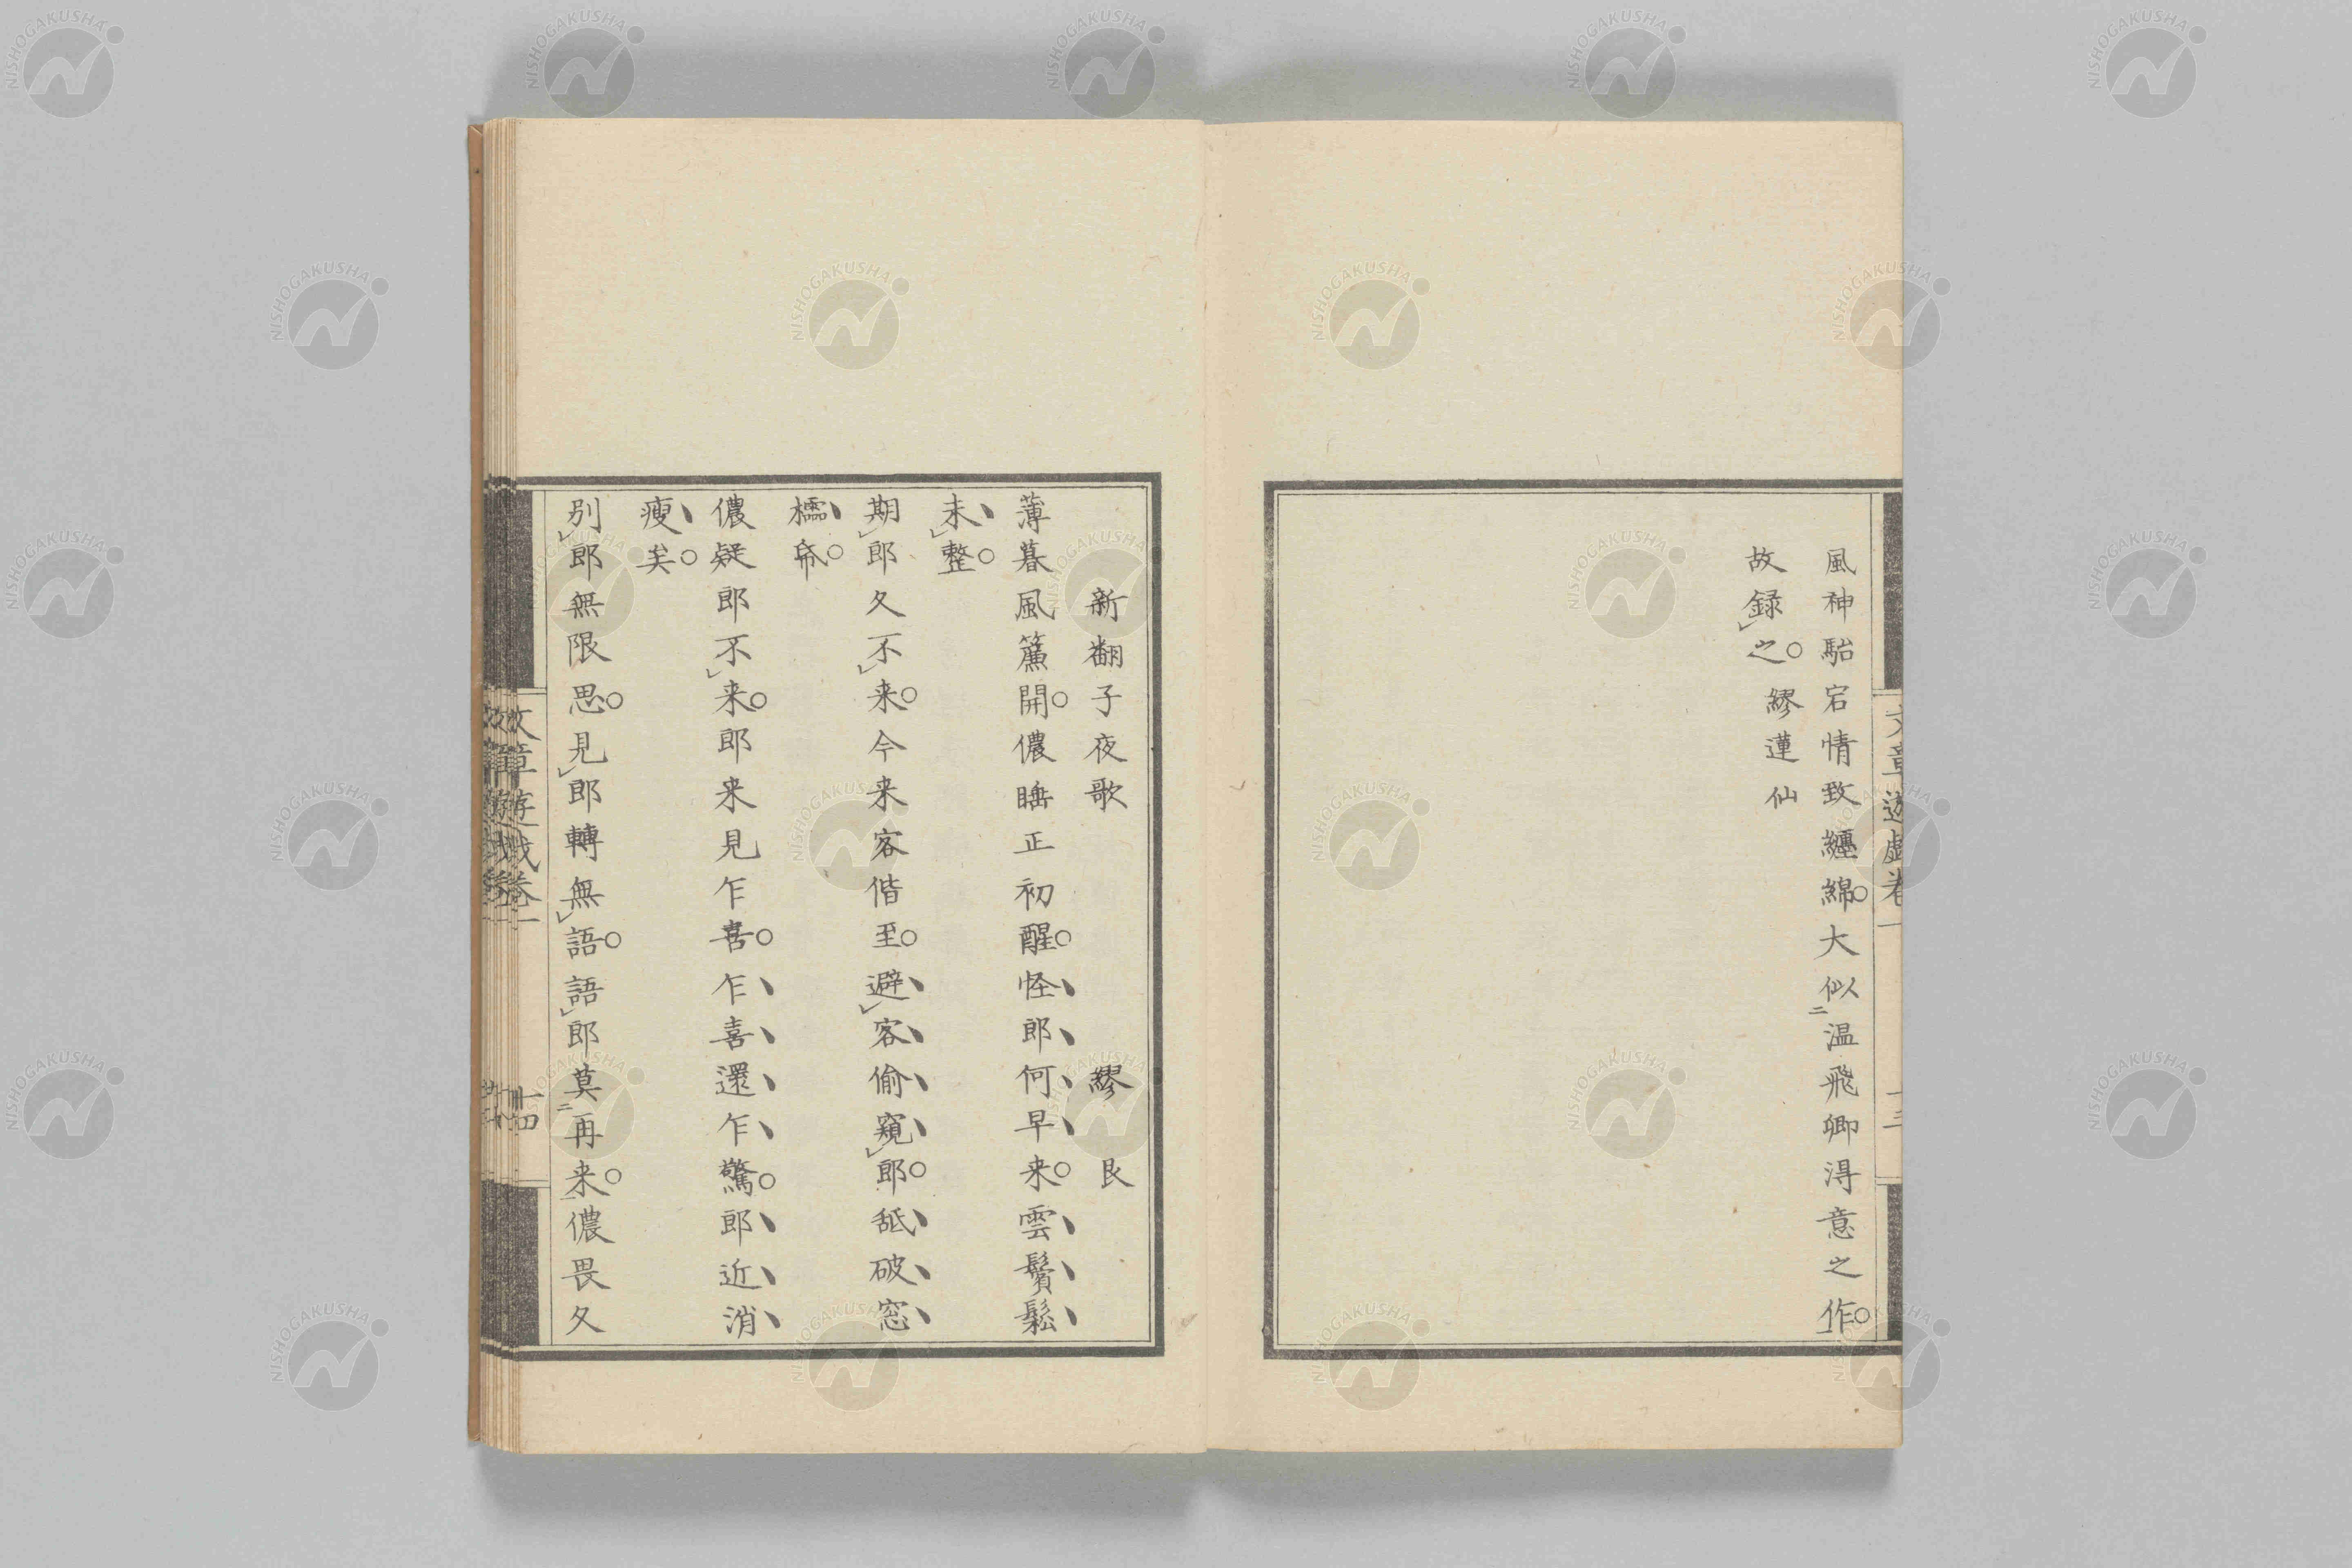 風神駘宕情致纏綿。大似二温飛卿淂意之作一。
故録レ之。繆蓮仙
新翻子夜歌　繆艮
薄暮風簾開。儂睡正初醒。怪郎何早来。雲鬢鬆
未レ整。
期レ郎久不レ来。今来客偕至。避レ客偷窺レ郎。舐破窓
櫺帋。
儂疑郎不レ来。郎来見乍喜。乍喜還乍驚。郎近消
瘦矣。
別レ郎無限思。見レ郎轉無レ語。語レ郎莫二再来一。儂畏久
文章遊戯卷一
十三
文章遊戯卷一
十四
NISHOGAKUSHA